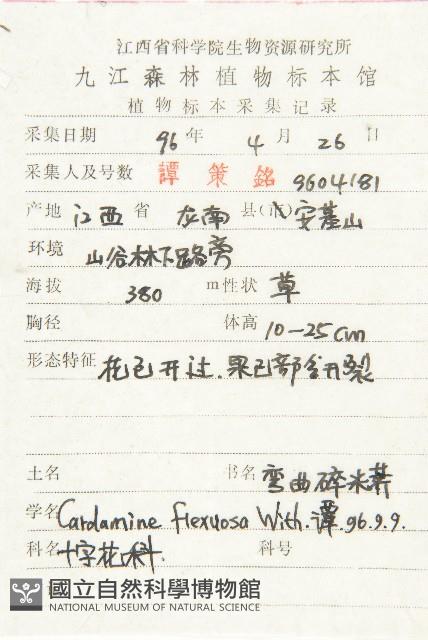 江西省科学院生物资源研究所
九江森林植物标本馆
植物标本采集记录
采集日期 96年 4月 26日
采集人及号数 譚策銘 9604181
产地 江西 省 龙南 县(市) 安基山
环境 山谷林下路旁
海拔 380 m性状 草
胸径 体高 10-25cm
形态特征 花已开过.果已部分开裂
土名 书名 弯曲碎米荠
学名 Cardamine flexuosa With. 谭.96.9.9.
科名 十字花科. 科号
國立自然科學博物館
NATIONAL MUSEUM OF NATURAL SCIENCE